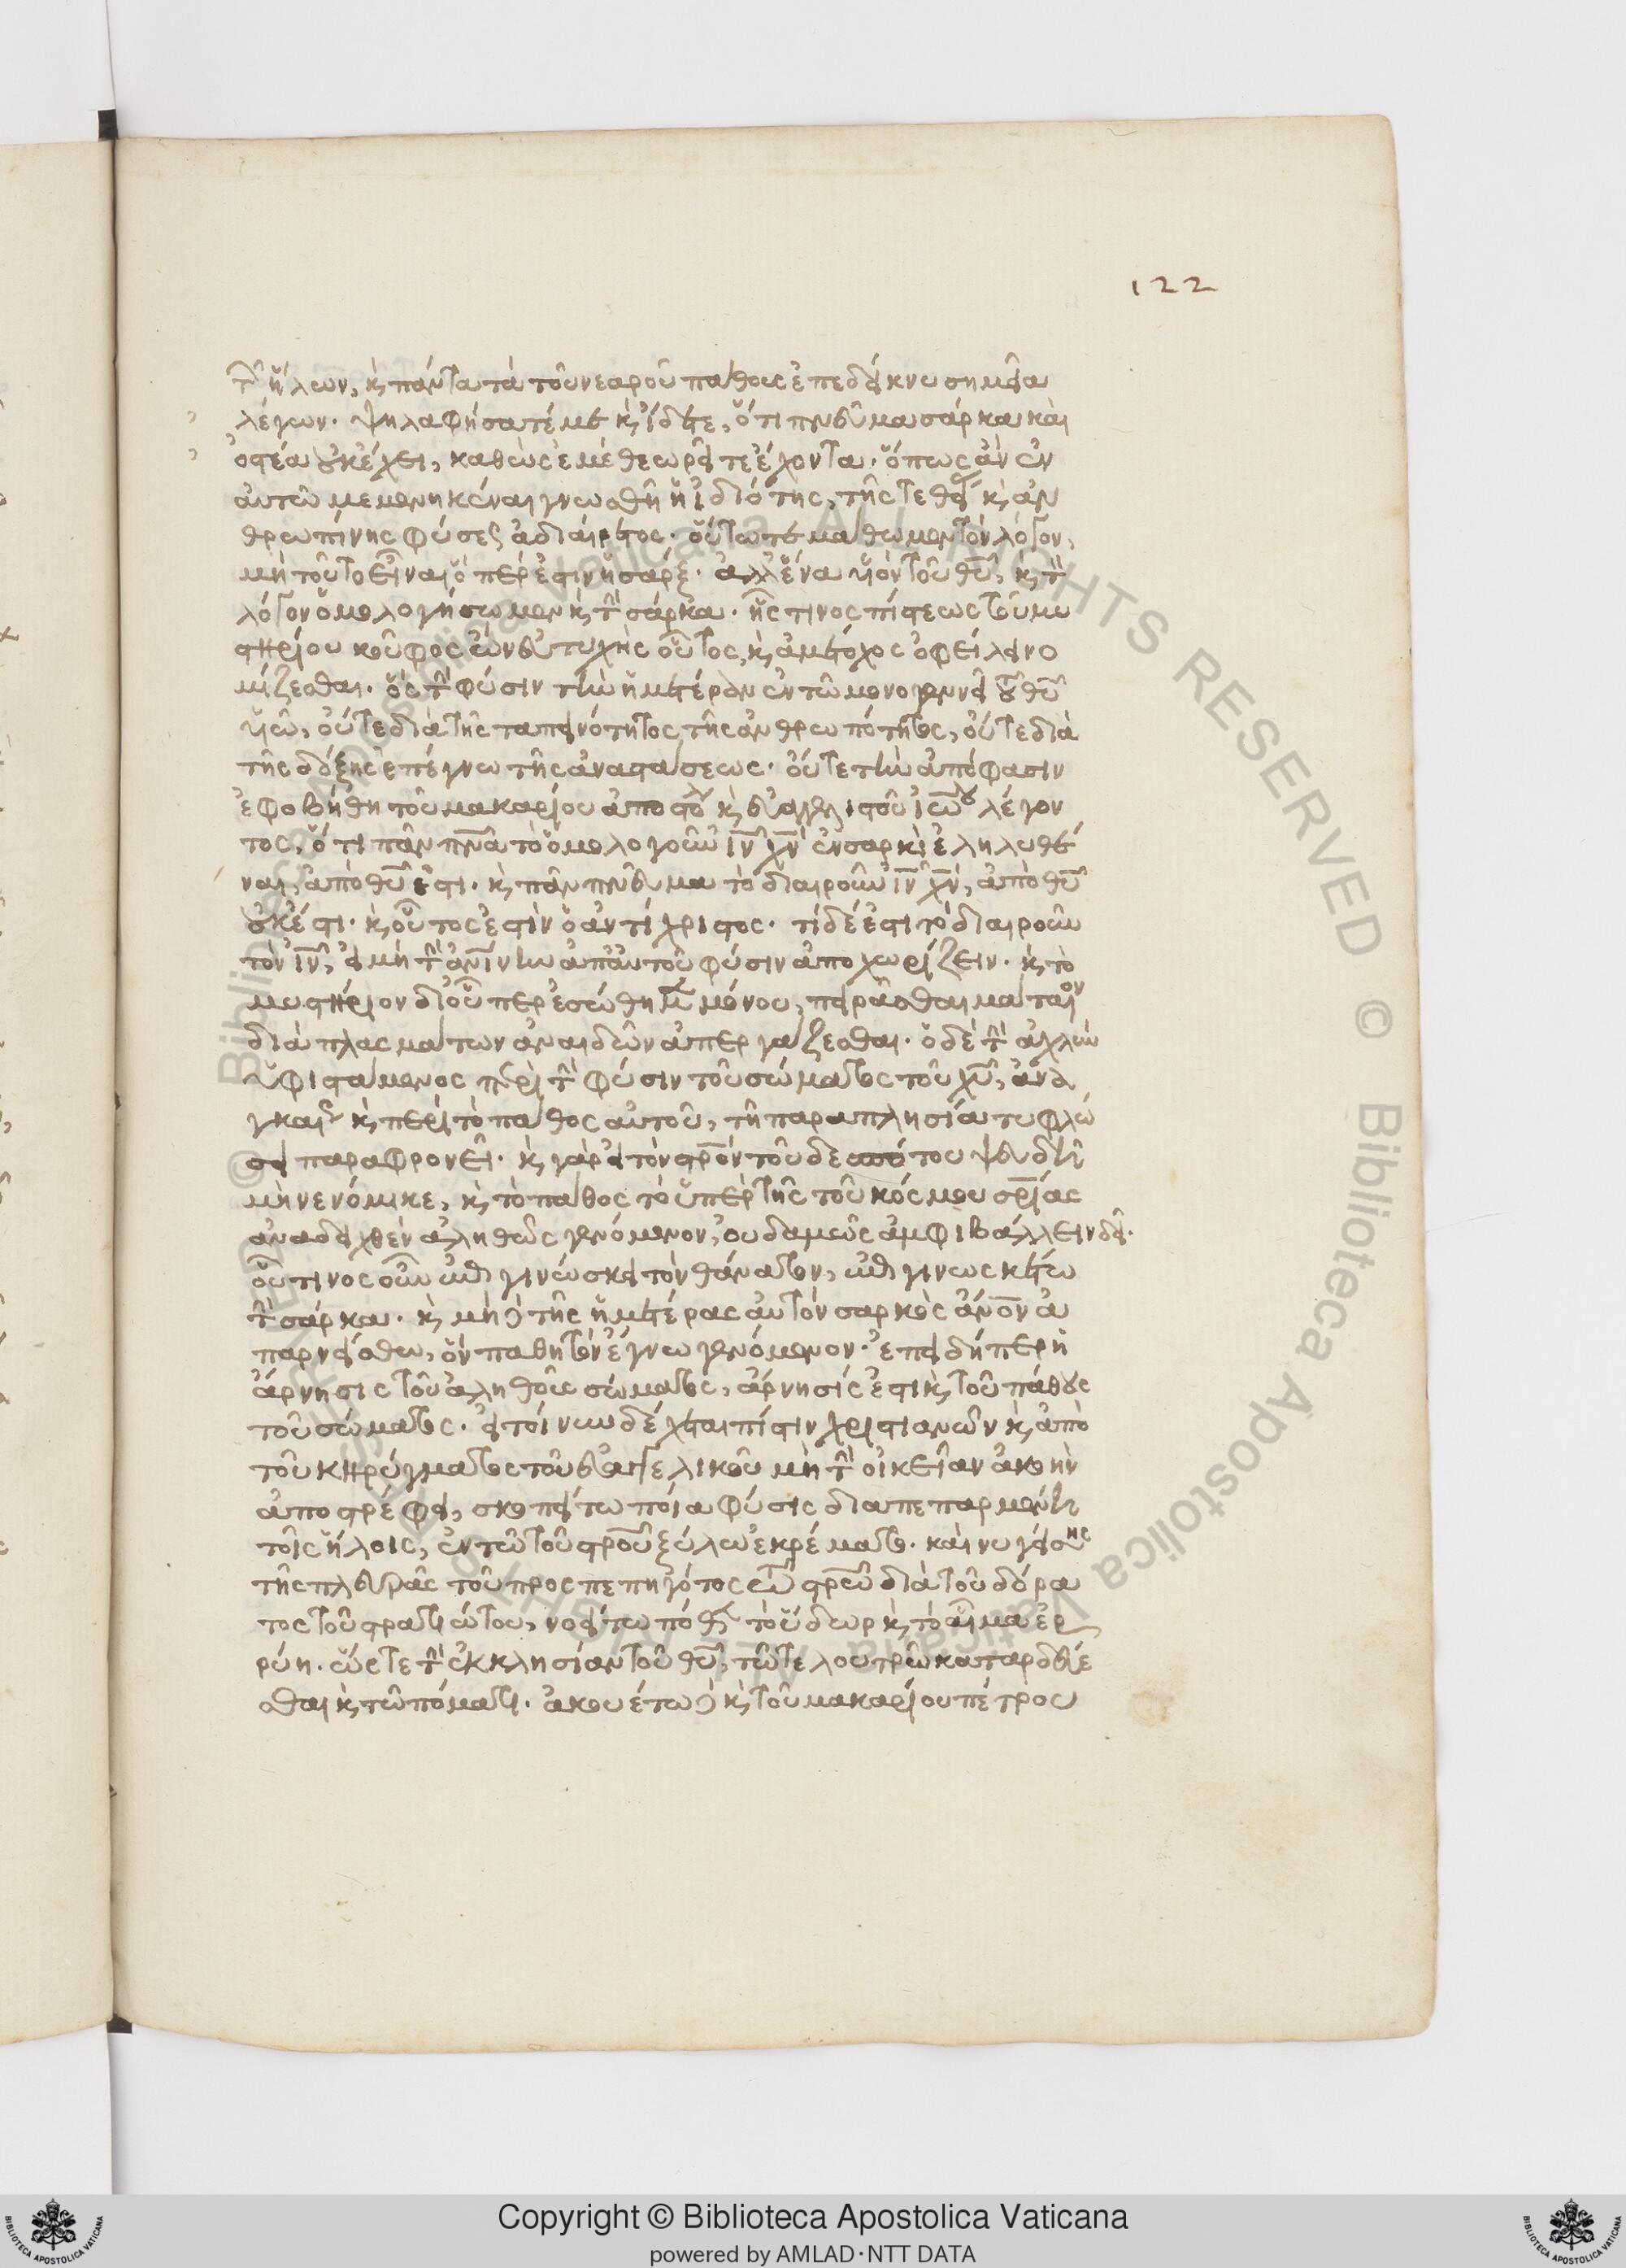 122
τῶν ἥλων, κ̀ πάντα τὰ τοῦ νεαροῦ πάθους ἐπεδείκνυ σημεῖα
λέγων· ψηλαφήσατέ με κ̀ ἴδετε, ὅτι πνεῦμα σάρκα καὶ
ὀστέα οὐκ ἔχει, καθὼς ἐμὲ θεωρεῖτε ἔχοντα· ὅπως ἂν ἐν
αὐτῶ μεμενηκέναι γνωσθῆ ἡ ἰδιότης, τῆς τε θείας κ̀ ἀν
θρωπίνης φύσεως ἀδιαίρετος· οὕτω τε μάθωμεν τὸν λόγον,
μὴ τοῦτο εἶναι ὅπερ ἐστὶν ἡ σάρξ· ἀλλ' ἕνα υἱὸν τοῦ θυ, κ̀ τὸν
λόγον ὁμολογήσωμεν κ̀ τὴν σάρκα· ἧς τινος πίστεως τοῦ μυ
στηρίου κοῦφος ὢν εὐτυχὴς οὗτος, κ̀ ἀμέτοχος ὀφείλει νο
μίζεσθαι· ὃς τὴν φύσιν τὴν ἡμετέραν ἐν τῶ μονογενεῖ τοῦ θυ
υἱῶ, οὔτε διὰ τῆς ταπεινότητος τῆς ἀνθρωπότητος, οὔτε διὰ
τῆς δόξης ἐπέγνω τῆς ἀναστάσεως· οὔτε τὴν ἀπόφασιν
ἐφοβήθη τοῦ μακαρίου ἀποστόλου κ̀ εὐαγγελιστοῦ ἰωάννου λέγον
τος, ὅτι πᾶν πνα τὸ ὁμολογοῦν ιν χν ἐν σαρκὶ ἐληλυθέ
ναι, ἀπὸ θυ ἐστι· κ̀ πᾶν πνεῦμα τὸ διαιροῦν ιν χν, ἀπὸ θυ
οὐκ ἔστι· κ̀ οὗτος ἐστὶν ὁ ἀντίχριστος· τί δέ ἐστι τὸ διαιροῦν
τὸν ιν, εἰ μὴ τὴν ἀνίνην ἀπ' αὐτοῦ φύσιν ἀποχωρίζειν· κ̀ τὸ
μυστήριον δι' οὗπερ ἐσώθημεν μόνου, πειρᾶσθαι μάταιον
διὰ πλασμάτων ἀναιδῶν ἀπεργάζεσθαι· ὁ δὲ τὴν ἀχλὺν
ὑφιστάμενος περὶ τὴν φύσιν τοῦ σώματος τοῦ χυ, ἀνα
γκαίως κ̀ περὶ τὸ πάθος αὐτοῦ, τῆ παραπλησία τυφλώ
σει παραφρονεῖ· κ̀ γὰρ εἰ τὸν στρον τοῦ δεσπότου ψευδῆ
μὴ νενόμικε, κ̀ τὸ πάθος τὸ ὑπὲρ τῆς τοῦ κόσμου σρίας
ἀναδειχθὲν ἀληθῶς γενόμενον, οὐδαμῶς ἀμφιβάλλειν δεῖ·
οὗτινος οὖν ἐπιγινώσκει τὸν θάνατον, ἐπιγινωσκέτω
τὴν σάρκα· κ̀ μὴ ἐκ τῆς ἡμετέρας αὐτὸν σαρκὸς ἄνον ἀ
παρνείσθω, ὃν παθητὸν ἔγνω γενόμενον· ἐπειδήπερ ἡ
ἄρνησις τοῦ ἀληθοῦς σώματος, ἄρνησίς ἐστι κ̀ τοῦ πάθους
τοῦ σώματος· εἰ τοίνυν δέχεται πίστιν χριστιανῶν κ̀ ἀπὸ
τοῦ κηρύγματος τοῦ εὐαγγελικοῦ μὴ τὴν οἰκείαν ἀκοὴν
ἀποστρέφει, σκοπείτω ποία φύσις διαπεπαρμένη
τοῖς ἥλοις, ἐν τῶ τοῦ στροῦ ξύλω ἐκρέματο· καὶ νυγείσης
τῆς πλευρᾶς τοῦ προσπεπηγότος τῶ στρῶ διὰ τοῦ δόρα
τος τοῦ στρατιώτου, νοείτω πόθεν τὸ ὕδωρ κ̀ τὸ αἷμα ἐρ
ρύη· ὥστε τὴν ἐκκλησίαν τοῦ θυ, τῶ τε λουτρῶ καταρδεύε
σθαι κ̀ τῶ πόματι· ἀκουέτω κ̀ τοῦ μακαρίου πέτρου
Copyright © Biblioteca Apostolica Vaticana
powered by AMLAD·NTT DATA